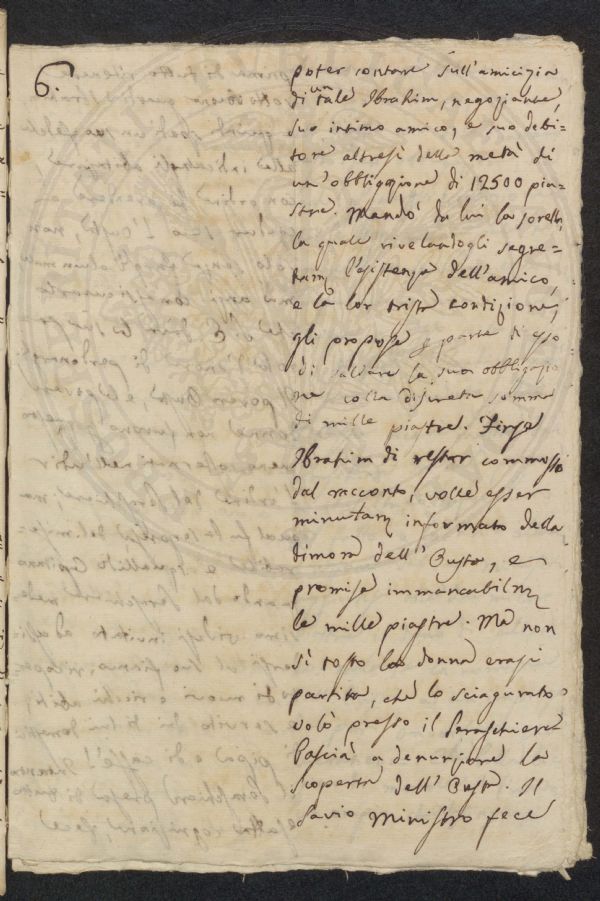 6.
poter contare sull'amicizia
di un tale Ibrahim, negoziante,
suo intimo amico, e suo debi=
tore altresì della metà di
un'obbligazione di 12500 pia=
stre. Mandò da lui la sorella,
la quale rivelandogli segre=
tam. l'esistenza dell'amico,
e la lor trista condizione,
gli propose p parte di esso
di saldare la sua obbligazio
ne colla discreta somma
di mille piastre. Finse
Ibrahim di restar commosso
dal racconto, volle esser
minutam. informato della
dimora dell'Custo, e
promise immancabilm.
le mille piastre. Ma non
sì tosto la donna erasi
partita, chè lo sciagurato
volò presso il Seraschiere
Pascià a denunziare la
scoperta dell'Custo. Il
Savio Ministro fece